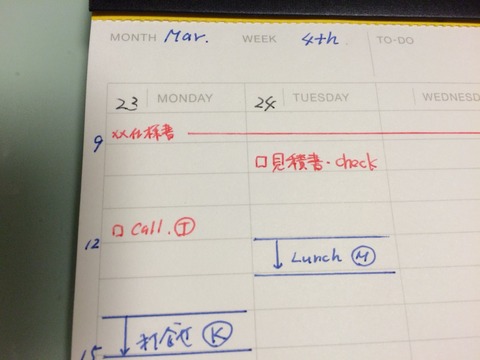 MONTH Mar. WEEK 4th TO-DO
23 MONDAY 24 TUESDAY WEDNESD
9 xx仕様書
□見積書・check
□ Call. Ⓣ
12
↓ Lunch Ⓜ
↓ 打合せ Ⓚ
15